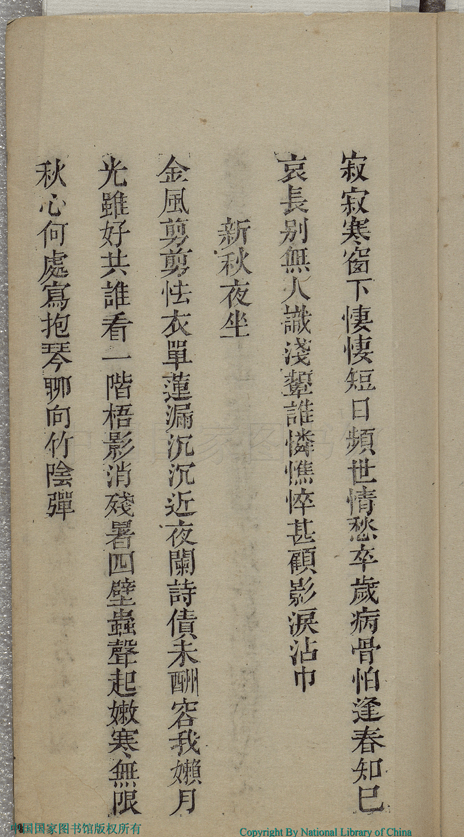 寂寂寒窗下悽悽短日頻世情愁卒歲病骨怕逢春知已
哀長别無人識淺顰誰憐憔悴甚顧影淚沾巾
新秋夜坐
金風剪剪怯衣單蓮漏沉沉近夜闌詩債未酬容我嬾月
光雖好共誰看一階梧影消殘暑四壁蟲聲起嫩寒無限
秋心何處寫抱琴聊向竹陰彈
中国国家图书馆版权所有
Copyright By National Library of China